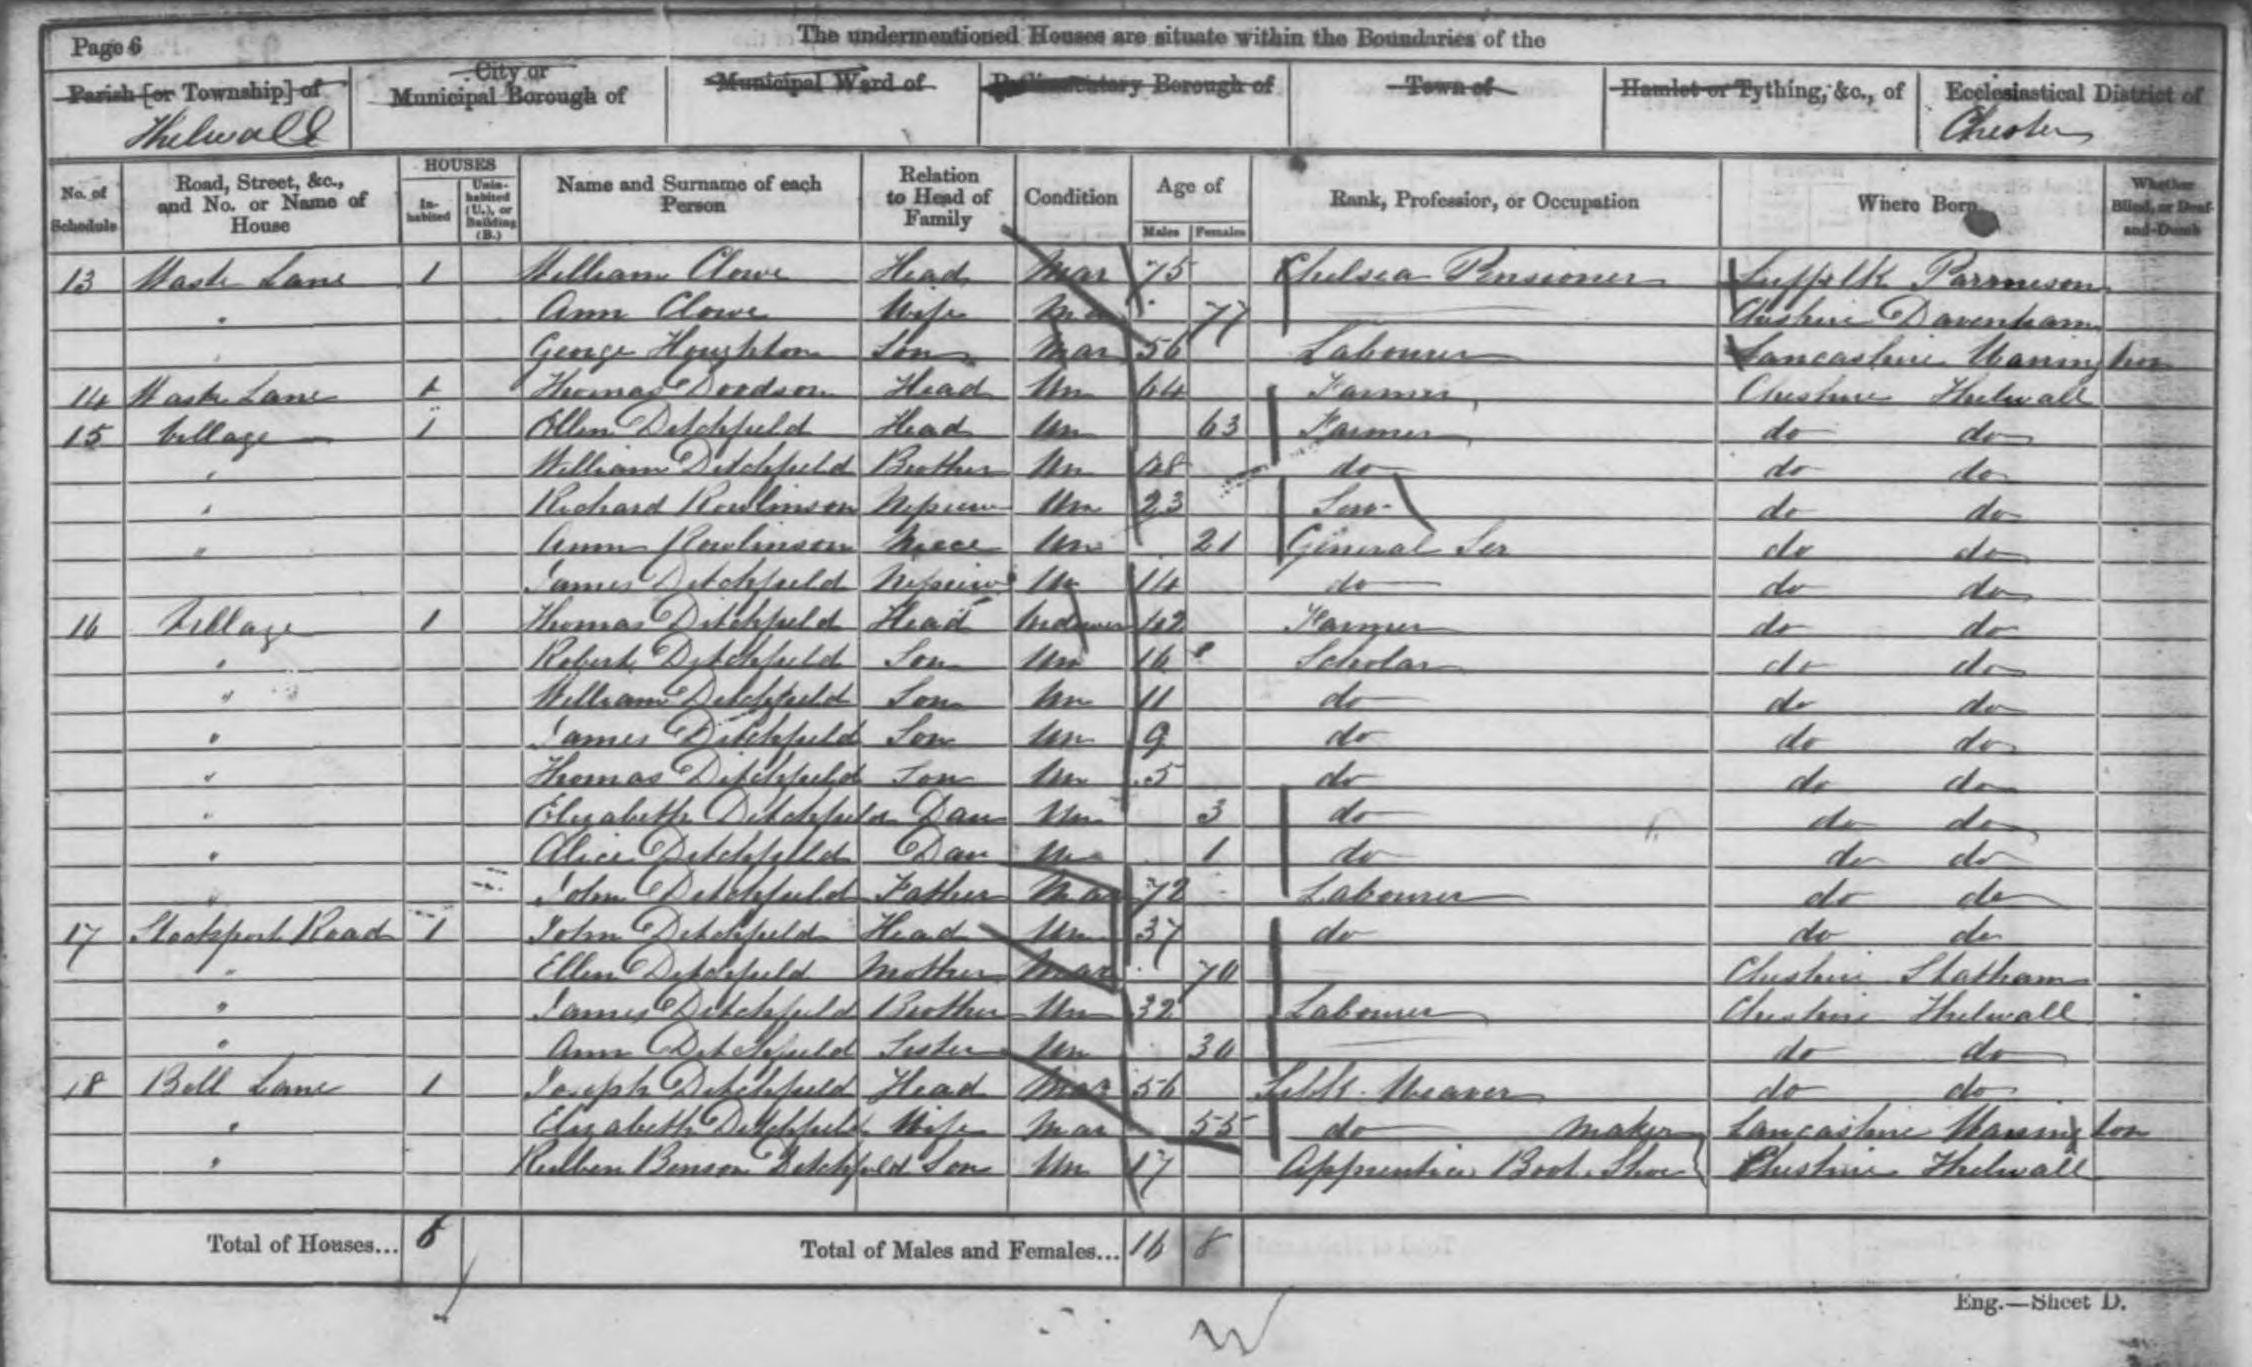 Page 6
The undermentioned Houses are situate within the Boundaries of the
Parish [or Township] of City or Municipal Borough of Municipal Ward of Parliamentary Borough of Town of Hamlet or Tything, &c., of Ecclesiastical District of
Thelwall Chester
No. of Schedule Road, Street, &c., and No. or Name of House HOUSES Inhabited Uninhabited (U.), or Building (B.) Name and Surname of each Person Relation to Head of Family Condition Age of Males Females Rank, Profession, or Occupation Where Born Whether Blind, or Deaf-and-Dumb
13 Lane 1 William Clowe Head Mar 75 Chelsea Pensioner Suffolk
" Ann Clowe Wife Mar 77 Cheshire Davenham
" George Houghton Son Mar 56 Labourer Lancashire Warrington
14 Lane 1 Thomas Doodson Head Un 64 Farmer Cheshire Thelwall
15 Village 1 Ellen Ditchfield Head Un 63 Farmer do do
" William Ditchfield Brother Un 48 do do do
" Richard Rowlinson Nepiew Un 23 Serv do do
" Ann Rowlinson Niece Un 21 General Ser do do
James Ditchfield Nepiew Un 14 do do do
16 Village 1 Thomas Ditchfield Head 42 Farmer do do
" Robert Ditchfield Son Un 16 Scholar do do
" William Ditchfield Son Un 11 do do do
" James Ditchfield Son Un 9 do do do
" Thomas Ditchfield Son Un 5 do do do
" Elizabeth Ditchfield Dau Un 3 do do do
" Alice Ditchfield Dau Un 1 do do do
" John Ditchfield Father Mar 72 Labourer do do
17 Stockport Road 1 John Ditchfield Head Un 37 do do do
" Ellen Ditchfield Mother Mar 70 Cheshire Statham
" James Ditchfield Brother Un 32 Labourer Cheshire Thelwall
" Ann Ditchfield Sister Un 30 do do
18 Bell Lane 1 Joseph Ditchfield Head Mar 56 Silk Weaver do do
" Elizabeth Ditchfield Wife Mar 55 do maker Lancashire Warrington
" Reuben Benson Ditchfield Son Un 17 Apprentice Boot Shoe Cheshire Thelwall
Total of Houses... 6 Total of Males and Females... 16 8
Eng.—Sheet D.